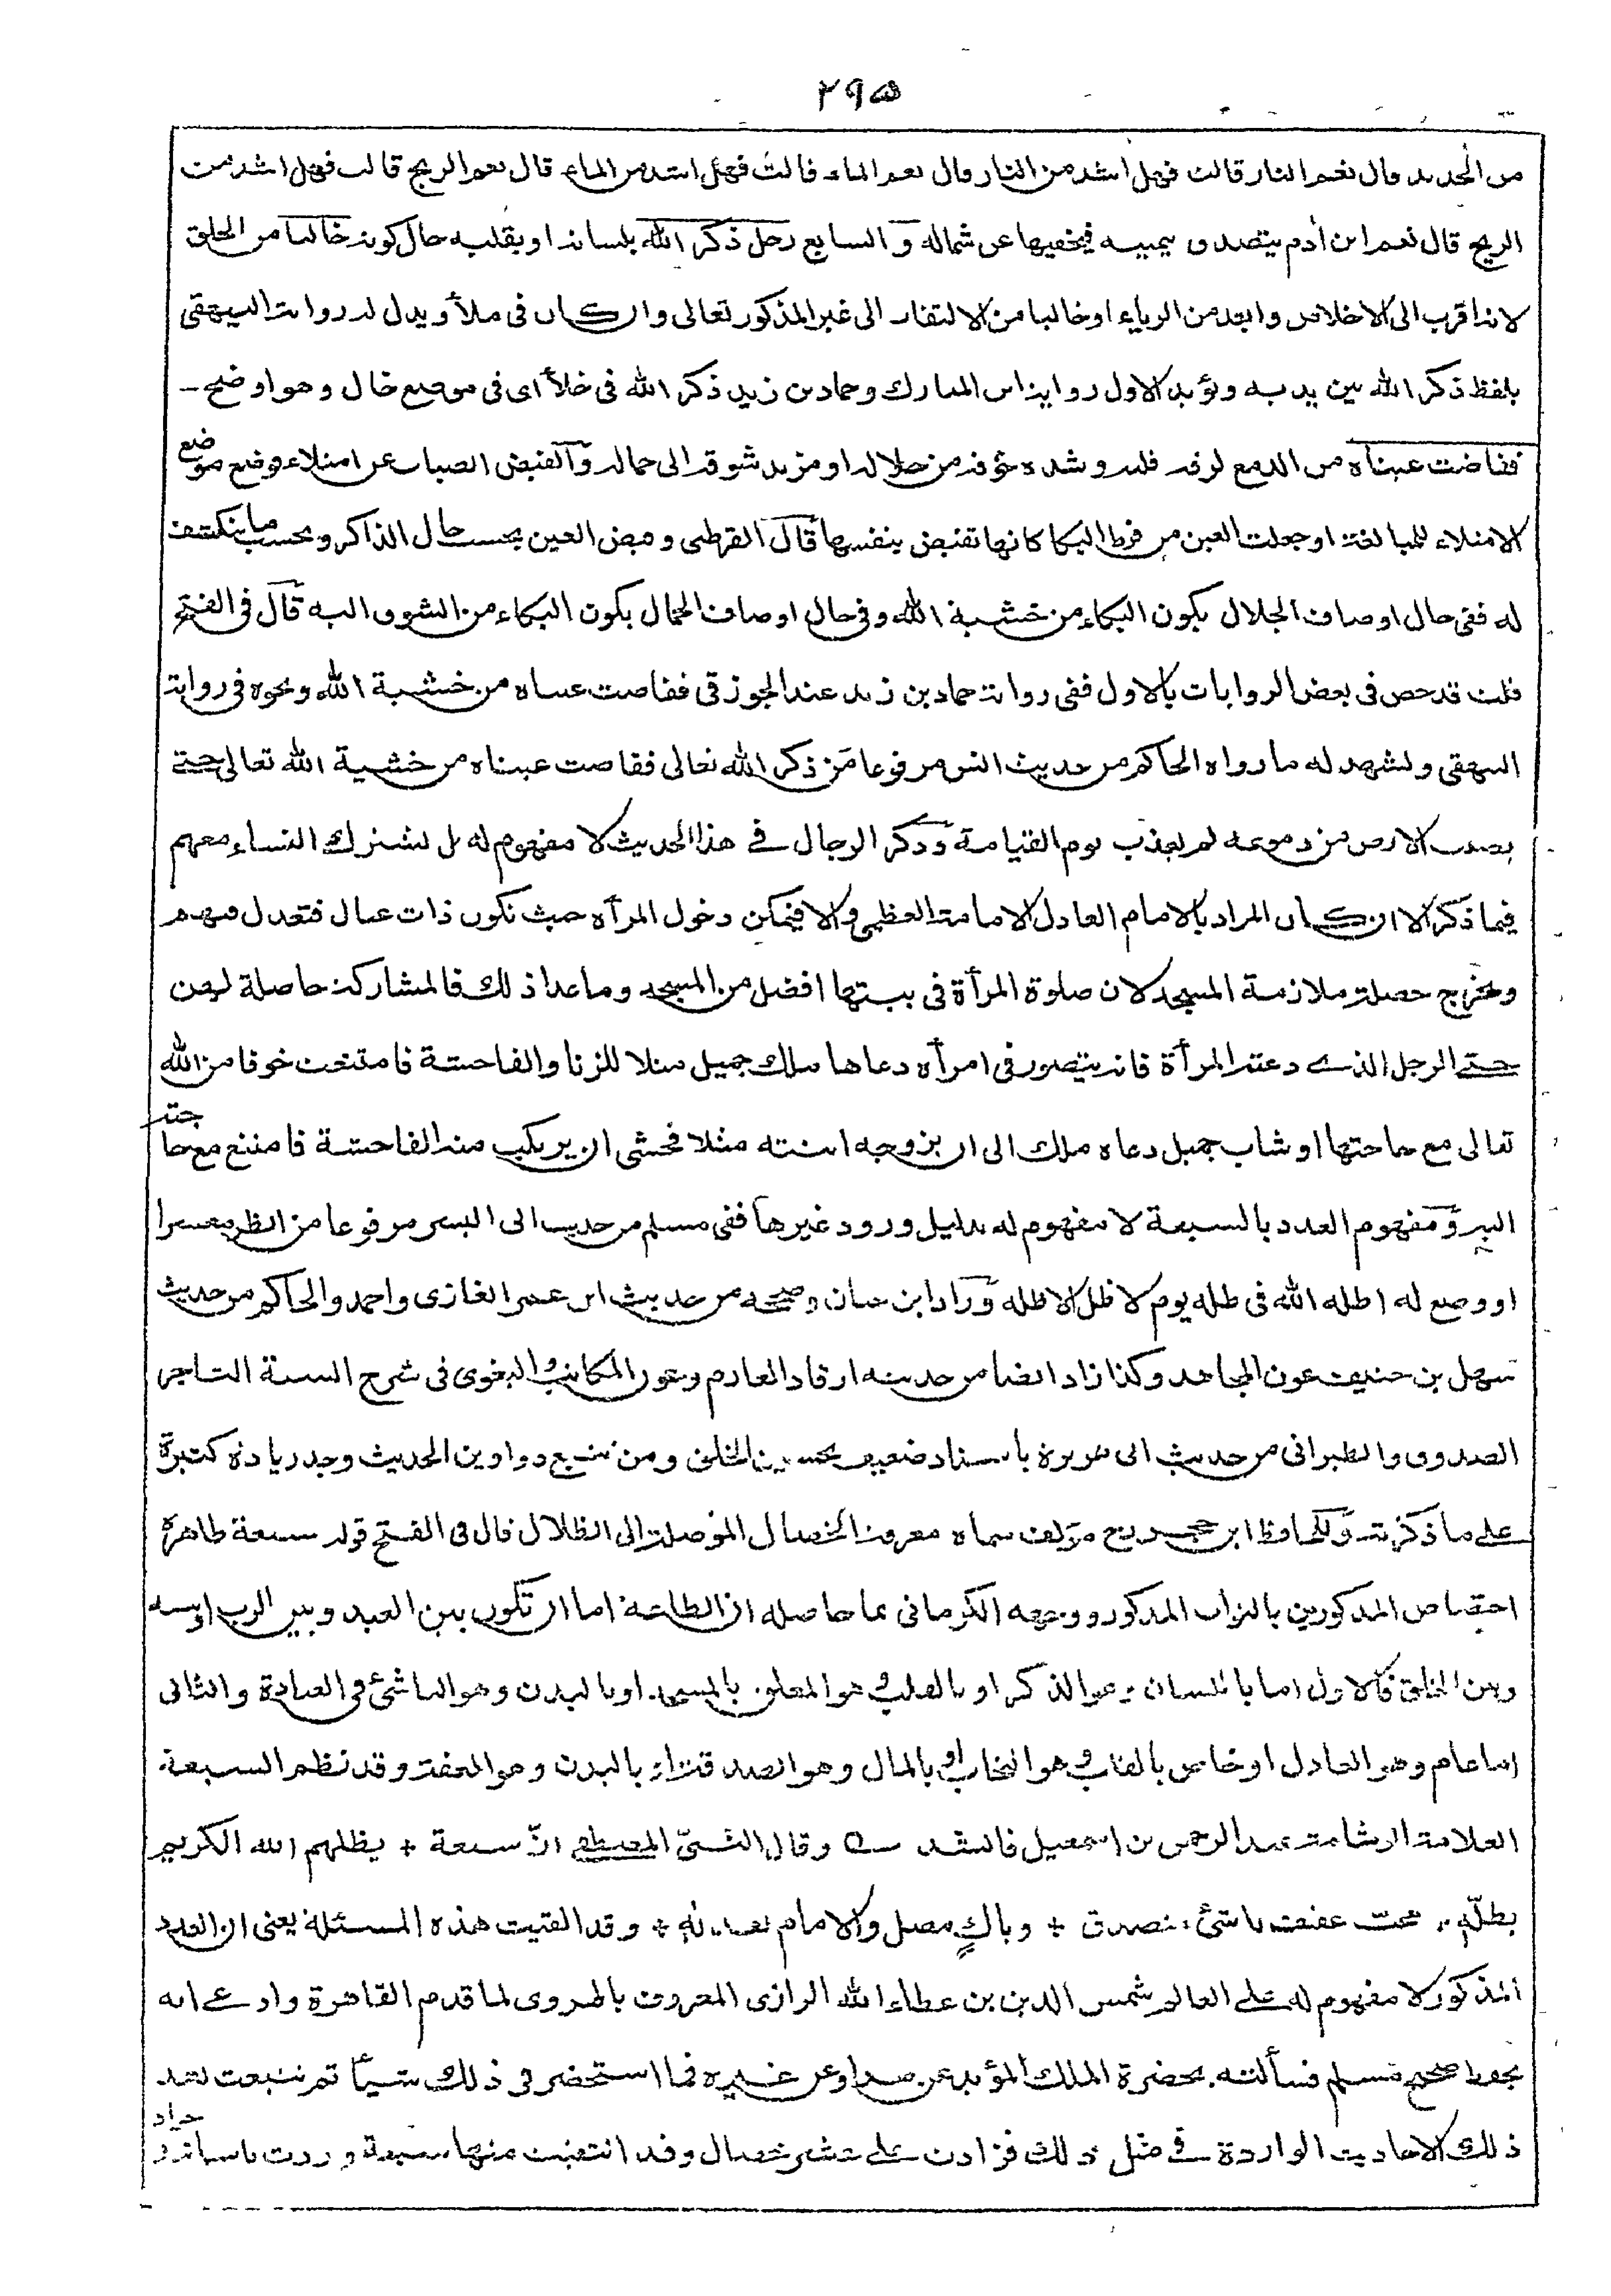 ٢٩٥
من الحديد قال نعم النار قالت فهل اشد من النار قال نعم الماء قالت فهل اشد من الماء قال نعم الريح قالت فهل اشد من
الريح قال نعم ابن أدم يتصدق بيمينه فيخفيها عن شماله و السابع رجل ذكر الله بلسانه او بقلبه حال كونه خاليا من الخلق
لانه اقرب الى الاخلاص وابعد من الرياء او خاليا من الالتفات الى غير المذكور تعالى وان كان فى ملأ ويدل له رواية البيهقى
بلفظ ذكر الله بين يديه ويؤيد الاول رواية ابن المبارك وحماد بن زيد ذكر الله فى خلأ أى فى موضع خال وهو اوضح
ففاضت عيناه من الدمع لرقة قلبه وشدة خوفه من جلاله او مزيد شوقه الى جماله والفيض الصباب عن امتلاء فوضع موضع
الامتلاء للمبالغة او جعلت العين من فرط البكا كانها تفيض بنفسها قال القرطبى وفيض العين بحسب حال الذاكر وبحسب ما ينكشف
له ففى حال اوصاف الجلال يكون البكاء من خشية الله وفى حال اوصاف الجمال يكون البكاء من الشوق اليه قال فى الفتح
قلت قد خص فى بعض الروايات بالاول ففى رواية حماد بن زيد عند الجوزقى ففاضت عيناه من خشية الله ونحوه فى رواية
البيهقى ويشهد له ما رواه الحاكم من حديث انس مرفوعا من ذكر الله تعالى ففاضت عيناه من خشية الله تعالى حتى
يصيب الارض من دموعه لم يعذب يوم القيامة وذكر الرجال فى هذا الحديث لا مفهوم له بل يشترك النساء معهم
فيما ذكر الا ان كان المراد بالامام العادل الامامة العظمى والا فيمكن دخول المرأة حيث تكون ذات عيال فتعدل فيهم
وتخرج خصلة ملازمة المسجد لان صلوة المرأة فى بيتها افضل من المسجد وما عدا ذلك فالمشاركة حاصلة لهن
حتى الرجل الذى دعته المرأة فانه يتصور فى امرأة دعاها ملك جميل مثلا للزنا والفاحشة فامتنعت خوفا من الله
تعالى مع حاجتها او شاب جميل دعاه ملك الى ان يزوجه ابنته مثلا فخشى ان يرتكب منه الفاحشة فامتنع مع حاجته
اليه ومفهوم العدد بالسبعة لا مفهوم له بدليل ورود غيرها ففى مسلم من حديث ابى اليسر مرفوعا من انظر معسرا
او وضع له اظله الله فى ظله يوم لا ظل الا ظله وزاد ابن حبان وصححه من حديث ابن عمر الغازى واحمد والحاكم من حديث
سهل بن حنيف عون المجاهد وكذا زاد ايضا من حديثه ارفاد الغارم وعون المكاتب والبغوى فى شرح السنة التاجر
الصدوق والطبرانى من حديث ابى هريرة باسناد ضعيف تحسين الخلق ومن تتبع دواوين الحديث وجد زيادة كثيرة
على ما ذكرته وللحافظ ابن حجر مؤلف سماه معرفة الخصال الموصلة الى الظلال قال فى الفتح قوله سبعة ظاهره
اختصاص المذكورين بالثواب المذكور ووجهه الكرمانى بما حاصله ان الطاعة اما ان تكون بين العبد وبين الرب او بينه
وبين الخلق فالاول اما باللسان وهو الذكر او بالقلب وهو المعلق بالمسجد او بالبدن وهو الناشئ فى العبادة والثانى
اما عام وهو العادل او خاص بالقلب وهو التحاب او بالمال وهو الصدقة او بالبدن وهو العفة وقد نظم السبعة
العلامة ابو شامة عبد الرحمن بن اسمعيل فانشد وقال النبىّ المصطفى انّ سبعة + يظلهم الله الكريم
بظلّه + محبّ عفيف ناشئ متصدق + وباكٍ مصل والامام بعدله + وقد القيت هذه المسئلة يعنى ان العدد
المذكور لا مفهوم له على العالم شمس الدين بن عطاء الله الرازى المعروف بالهروى لما قدم القاهرة وادعى انه
يحفظ صحيح مسلم فسألته بحضرة الملك المؤيد عن هذا وعن غيره فما استحضر فى ذلك شيأ ثم تتبعت بعد
ذلك الاحاديث الواردة فى مثل ذلك فزادت على عشر خصال وقد انتقيت منها سبعة وردت باسانيد جياد